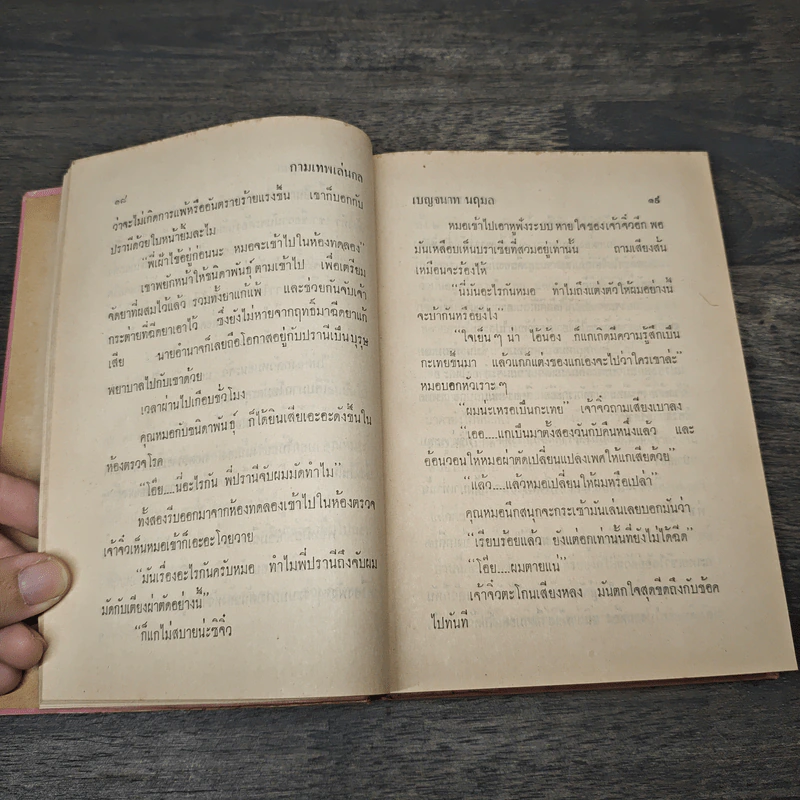 ๑๘
กามเทพเล่นกล
ว่าจะไม่เกิดการแพ้หรืออันตรายร้ายแรงขึ้น เขาก็บอกกับ
ปรานีด้วยใบหน้ายิ้มละไม
“พี่เฝ้าไข้อยู่ก่อนนะ หมอจะเข้าไปในห้องทดลอง”
เขาพยักหน้าให้ขนิดาพันธุ์ตามเข้าไป เพื่อเตรียม
จัดยาที่ผสมไว้แล้ว รวมทั้งยาแก้แพ้ และช่วยกันจับเจ้า
กระต่ายที่ฉีดยาเอาไว้ ซึ่งยังไม่หายจากฤทธิ์มาฉีดยาแก้
เสีย นายอำนาจก็เลยถือโอกาสอยู่กับปรานีเป็นบุรุษ
พยาบาลไปกับเขาด้วย
เวลาผ่านไปเกือบชั่วโมง
คุณหมอกับขนิดาพันธุ์ ก็ได้ยินเสียเอะอะดังขึ้นใน
ห้องตรวจโรค
“โอ๊ย....นี่อะไรกัน พี่ปรานีจับผมมัดทำไม”
ทั้งสองรีบออกมาจากห้องทดลองเข้าไปในห้องตรวจ
เจ้าจิ๋วเห็นหมอเข้าก็เอะอะโวยวาย
“มันเรื่องอะไรกันครับหมอ ทำไมพี่ปรานีถึงจับผม
มัดกับเตียงผ่าตัดอย่างนี้”
“ก็แกไม่สบายน่ะซิจิ๋ว
เบญจนาท นฤมล
๑๙
หมอเข้าไปเอาหูฟังระบบหายใจของเจ้าจิ๋วอีก พอ
มันเหลือบเห็นบราเซียที่สวมอยู่เท่านั้น ถามเสียงสั่น
เหมือนจะร้องไห้
“นี่มันอะไรกันหมอ ทำไมถึงแต่งตัวให้ผมอย่างนี้
จะบ้ากันหรือยังไง”
“ใจเย็นๆ น่า ไอ้น้อง ก็แกเกิดมีความรู้สึกเป็น
กะเทยขึ้นมา แล้วแกก็แต่งของแกเองจะไปว่าใครเขาล่ะ”
หมอบอกหัวเราะๆ
“ผมน่ะเหรอเป็นกะเทย” เจ้าจิ๋วถามเสียงเบาลง
“เออ....แกเป็นมาตั้งสองวันกับคืนหนึ่งแล้ว และ
อ้อนวอนให้หมอผ่าตัดเปลี่ยนแปลงเพศให้แกเสียด้วย”
“แล้ว....แล้วหมอเปลี่ยนให้ผมหรือเปล่า”
คุณหมอนึกสนุกจะกระเซ้ามันเล่นเลยบอกมันว่า
“เรียบร้อยแล้ว ยังแต่อกเท่านั้นที่ยังไม่ได้ฉีด”
“โอ๊ย....ผมตายแน่”
เจ้าจิ๋วตะโกนเสียงหลง มันตกใจสุดขีดถึงกับช้อค
ไปทันที